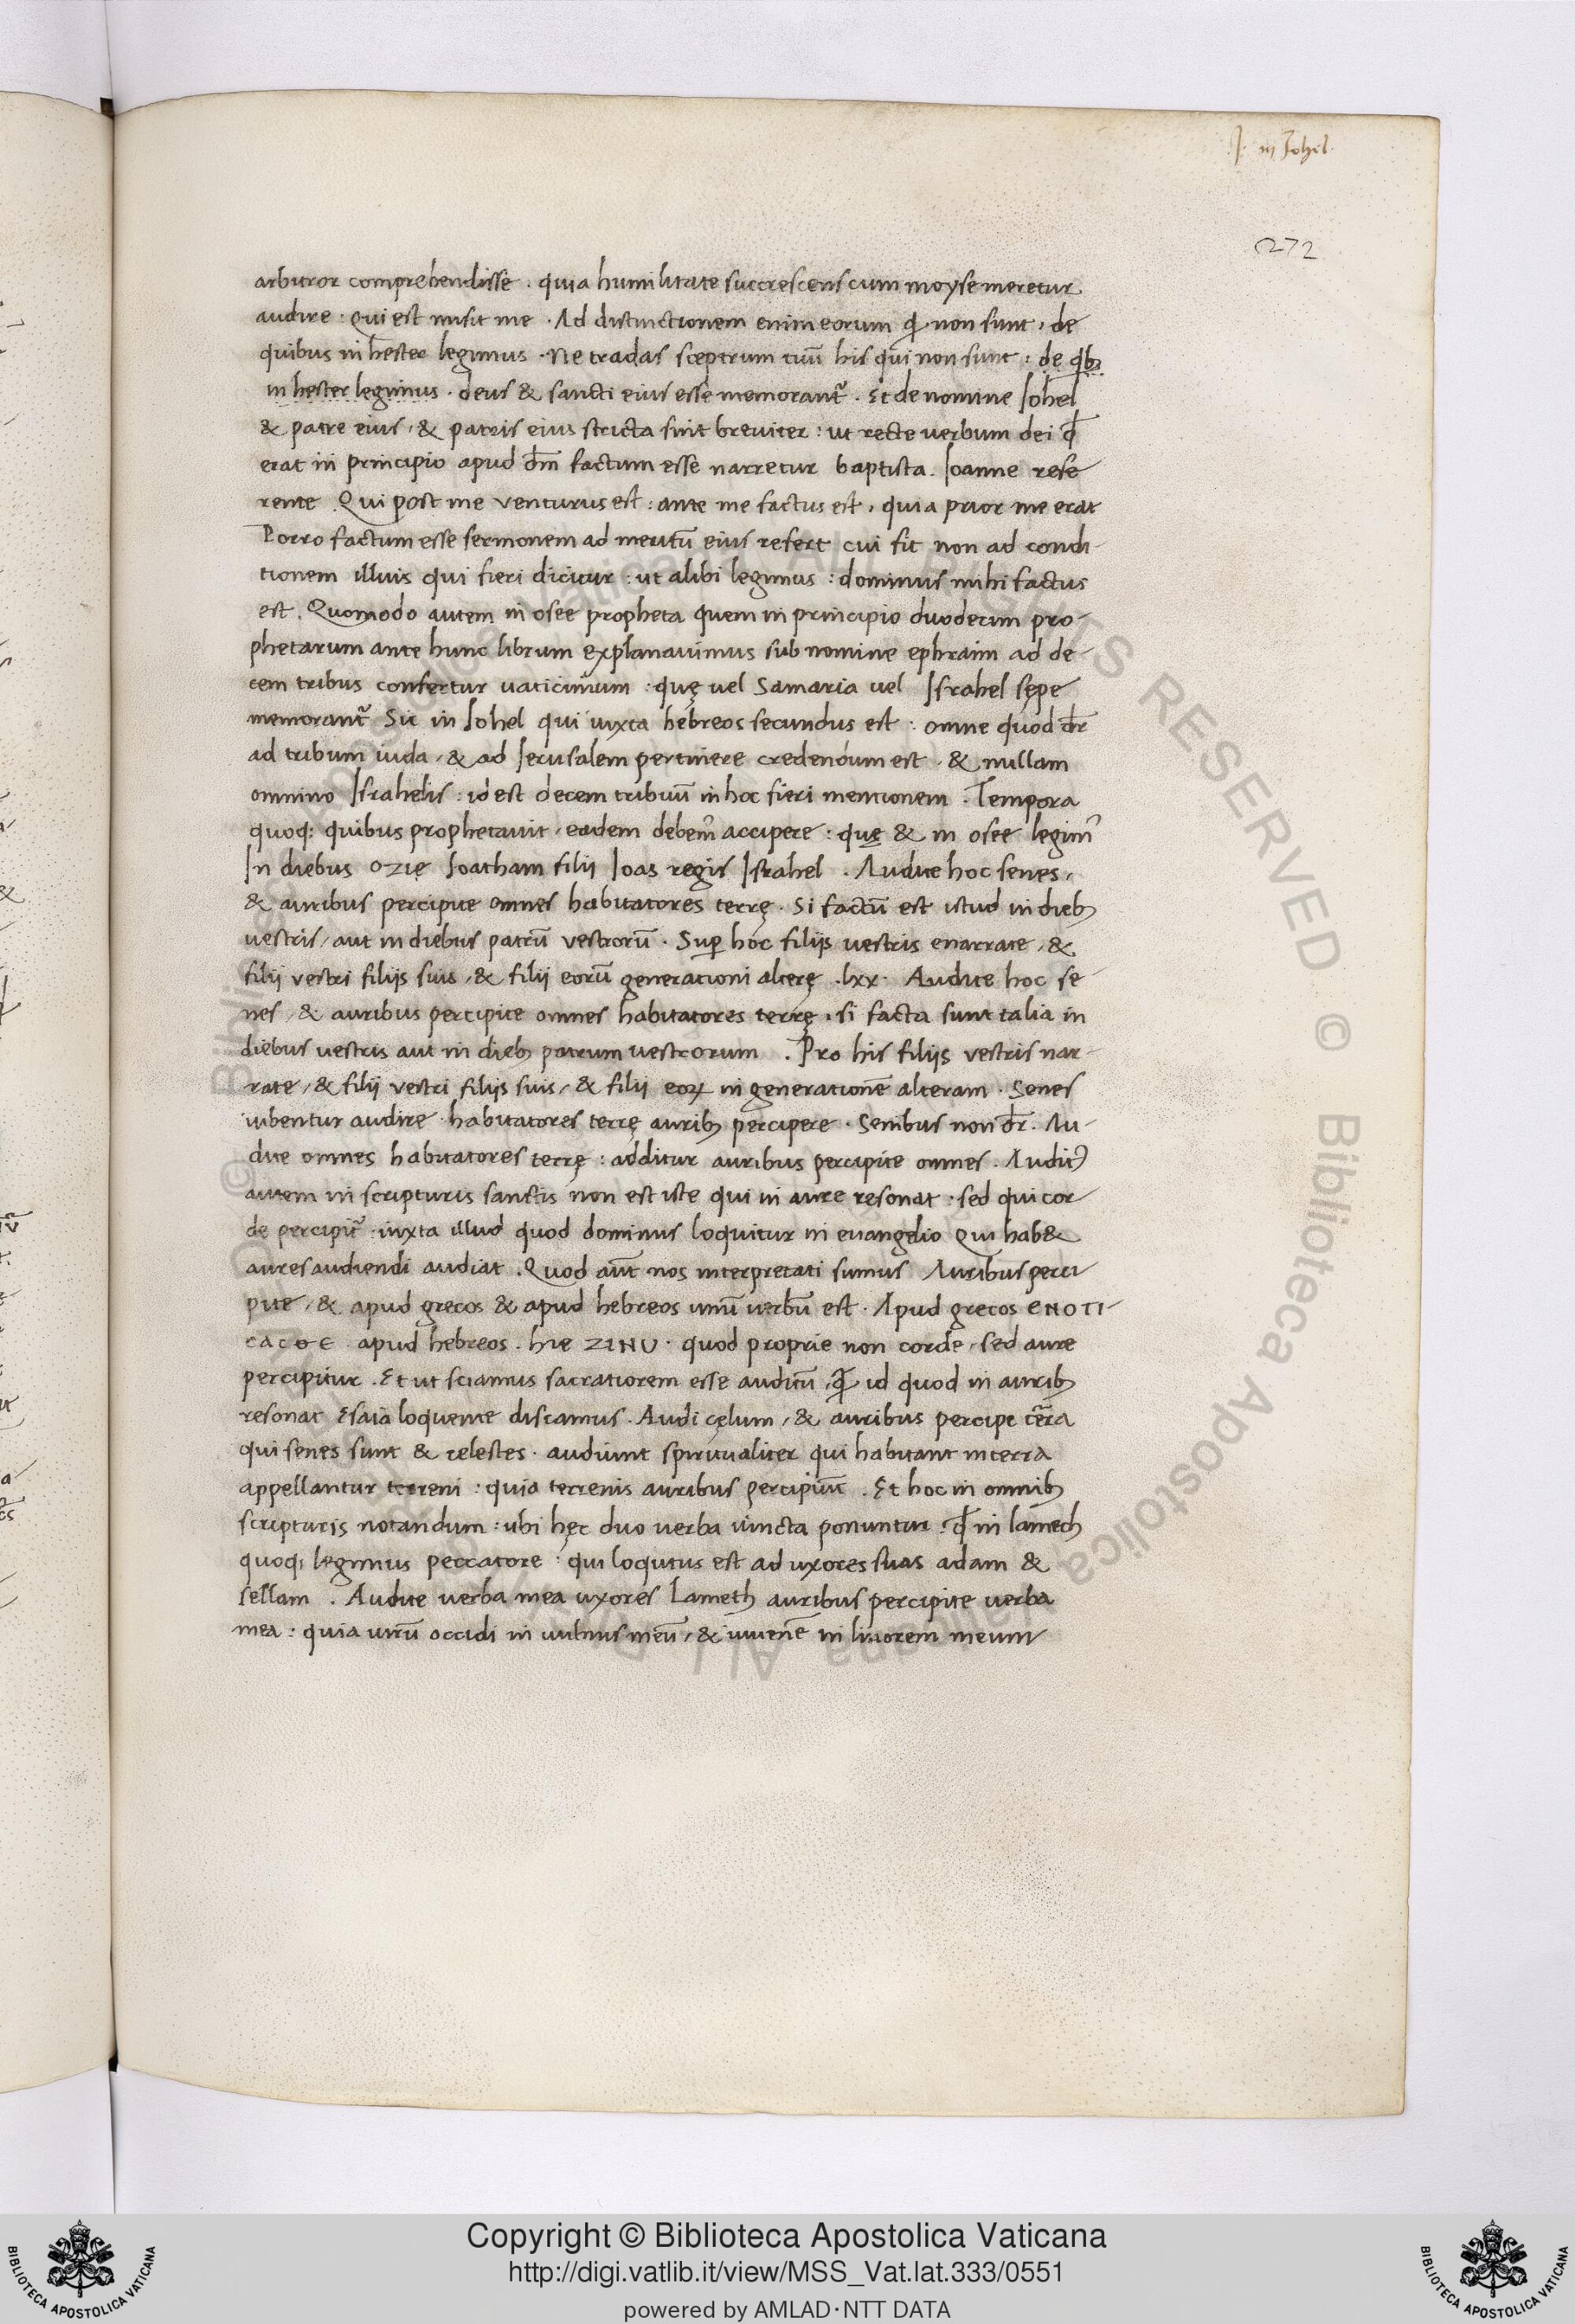 .J. in Johel.
272
arbitror comprehendisse . quia humilitate succrescens cum moyse meretur
audire : Qui est misit me . Ad distinctionem enim eorum q̄ non sunt , de
quibus in hester legimus . Ne tradas sceptrum tuū his qui non sunt : de qb;
in hester legimus . deus & sancti eius esse memorant᷑ . Et de nomine Johel
& patre eius , & patris eius stricta sint breviter : ut recte verbum dei qđ
erat in principio apud dm̄ factum esse narretur baptista . Joanne refe
rente . Qui post me venturus est : ante me factus est , quia prior me erat
Porro factum esse sermonem ad meritū eius refert cui fit non ad condi-
tionem illius qui fieri dicitur : ut alibi legimus : dominus mihi factus
est . Quomodo autem in osee propheta quem in principio duodecim pro-
phetarum ante hunc librum explanavimus sub nomine ephraim ad de-
cem tribus confertur vaticinium : quę vel Samaria vel Israhel sępe
memorant᷑ Sic in Johel qui iuxta hebreos secundus est : omne quod dr̄
ad tribum iuda , & ad Jerusalem pertinere credendum est , & nullam
omnino Israhelis : id est decem tribuū in hoc fieri mentionem . Tempora
quoq; quibus prophetavit , eadem debem᷒ accipere : quę & in osee legim᷒
In diebus ozię Joatham filii Joas regis Israhel . Audite hoc senes ,
& auribus percipite omnes habitatores terrę . Si factū est istud in dieb;
vestris , aut in diebus patrū vestrorū . Sup̄ hoc filijs vestris enarrate , &
filii vestri filijs suis , & filii eorū generationi alterę . lxx . Audite hoc se-
nes , & auribus percipite omnes habitatores terrę , si facta sunt talia in
diebus vestris aut in dieb; patrum vestrorum . Pro his filijs vestris nar-
rate , & filii vestri filijs suis , & filii eoꝝ in generationē alteram . Senes
iubentur audire habitatores terrę aurib; percipere . Senibus non dr̄ . Au-
dite omnes habitatores terrę : additur auribus percipite omnes . Audit᷒
autem in scripturis sanctis non est iste qui in aure resonat . sed qui cor
de percipit᷑ iuxta illud quod dominus loquitur in evangelio Qui hab&
aures audiendi audiat . Quod aūt nos interpretati sumus Auribus perci
pite , & apud grecos & apud hebreos unū verbū est . Apud grecos ENOTI-
CACΘE . apud hebreos . hie ZINU . quod proprie non corde , sed aure
percipitur . Et ut sciamus sacratiorem esse auditū , q̄ id quod in aurib;
resonat Esaia loquente discamus . Audi cęlum , & auribus percipe terr̄a
qui senes sunt & celestes . audiunt spiritualiter qui habitant in terra
appellantur terreni : quia terrenis auribus percipiūt . Et hoc in omnib;
scripturis notandum : ubi hęc duo verba iuncta ponuntur . qđ in lamech
quoq; legimus peccatore : qui loqutus est ad uxores suas adam &
sellam . Audite verba mea uxores Lameth auribus percipite verba
mea : quia virū occidi in vulnus meū , & iuvenē in livorem meum
© Biblioteca Apostolica Vaticana ALL RIGHTS RESERVED
Copyright © Biblioteca Apostolica Vaticana
http://digi.vatlib.it/view/MSS_Vat.lat.333/0551
powered by AMLAD·NTT DATA
BIBLIOTECA APOSTOLICA VATICANA
BIBLIOTECA APOSTOLICA VATICANA